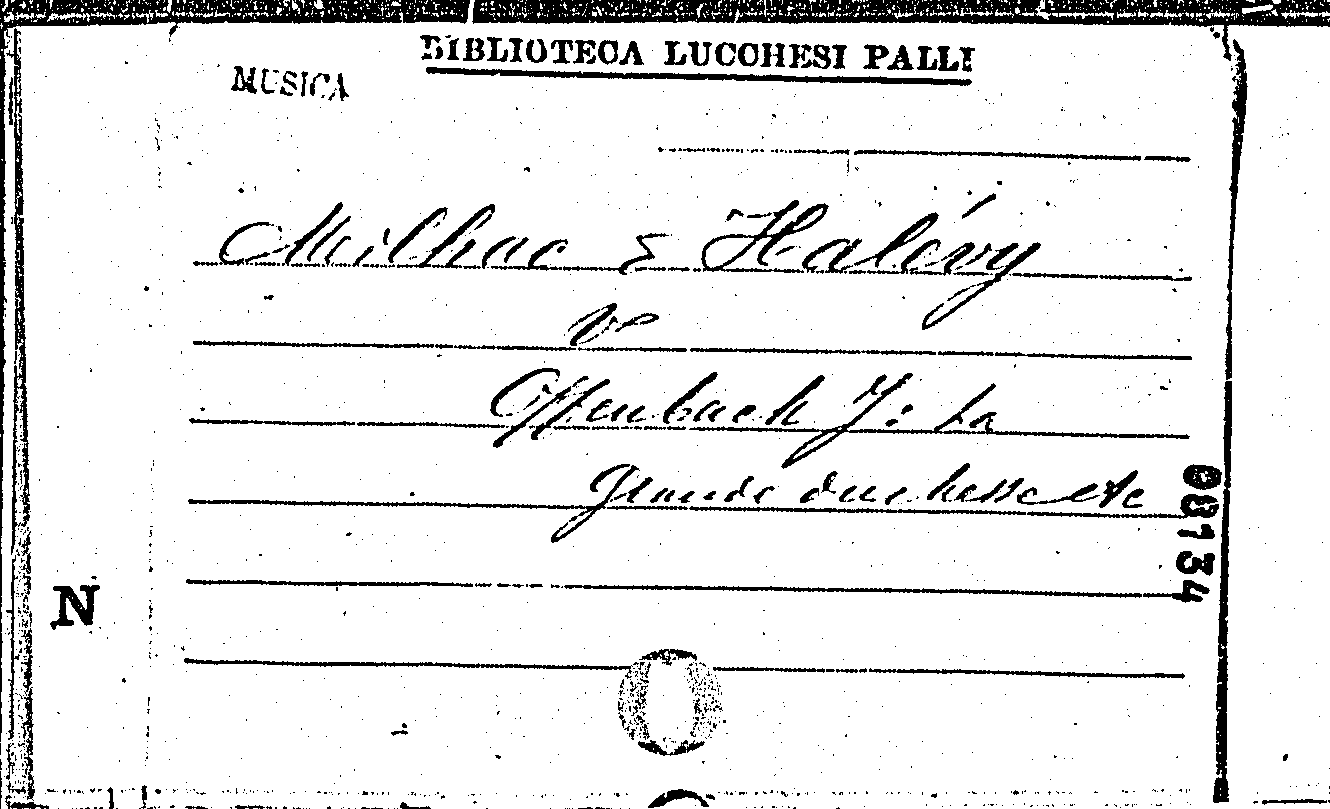 BIBLIOTECA LUCCHESI PALLI
MUSICA
Meilhac & Halévy
Ve
Offenbach J: La
Grande duchesse etc
08134
N